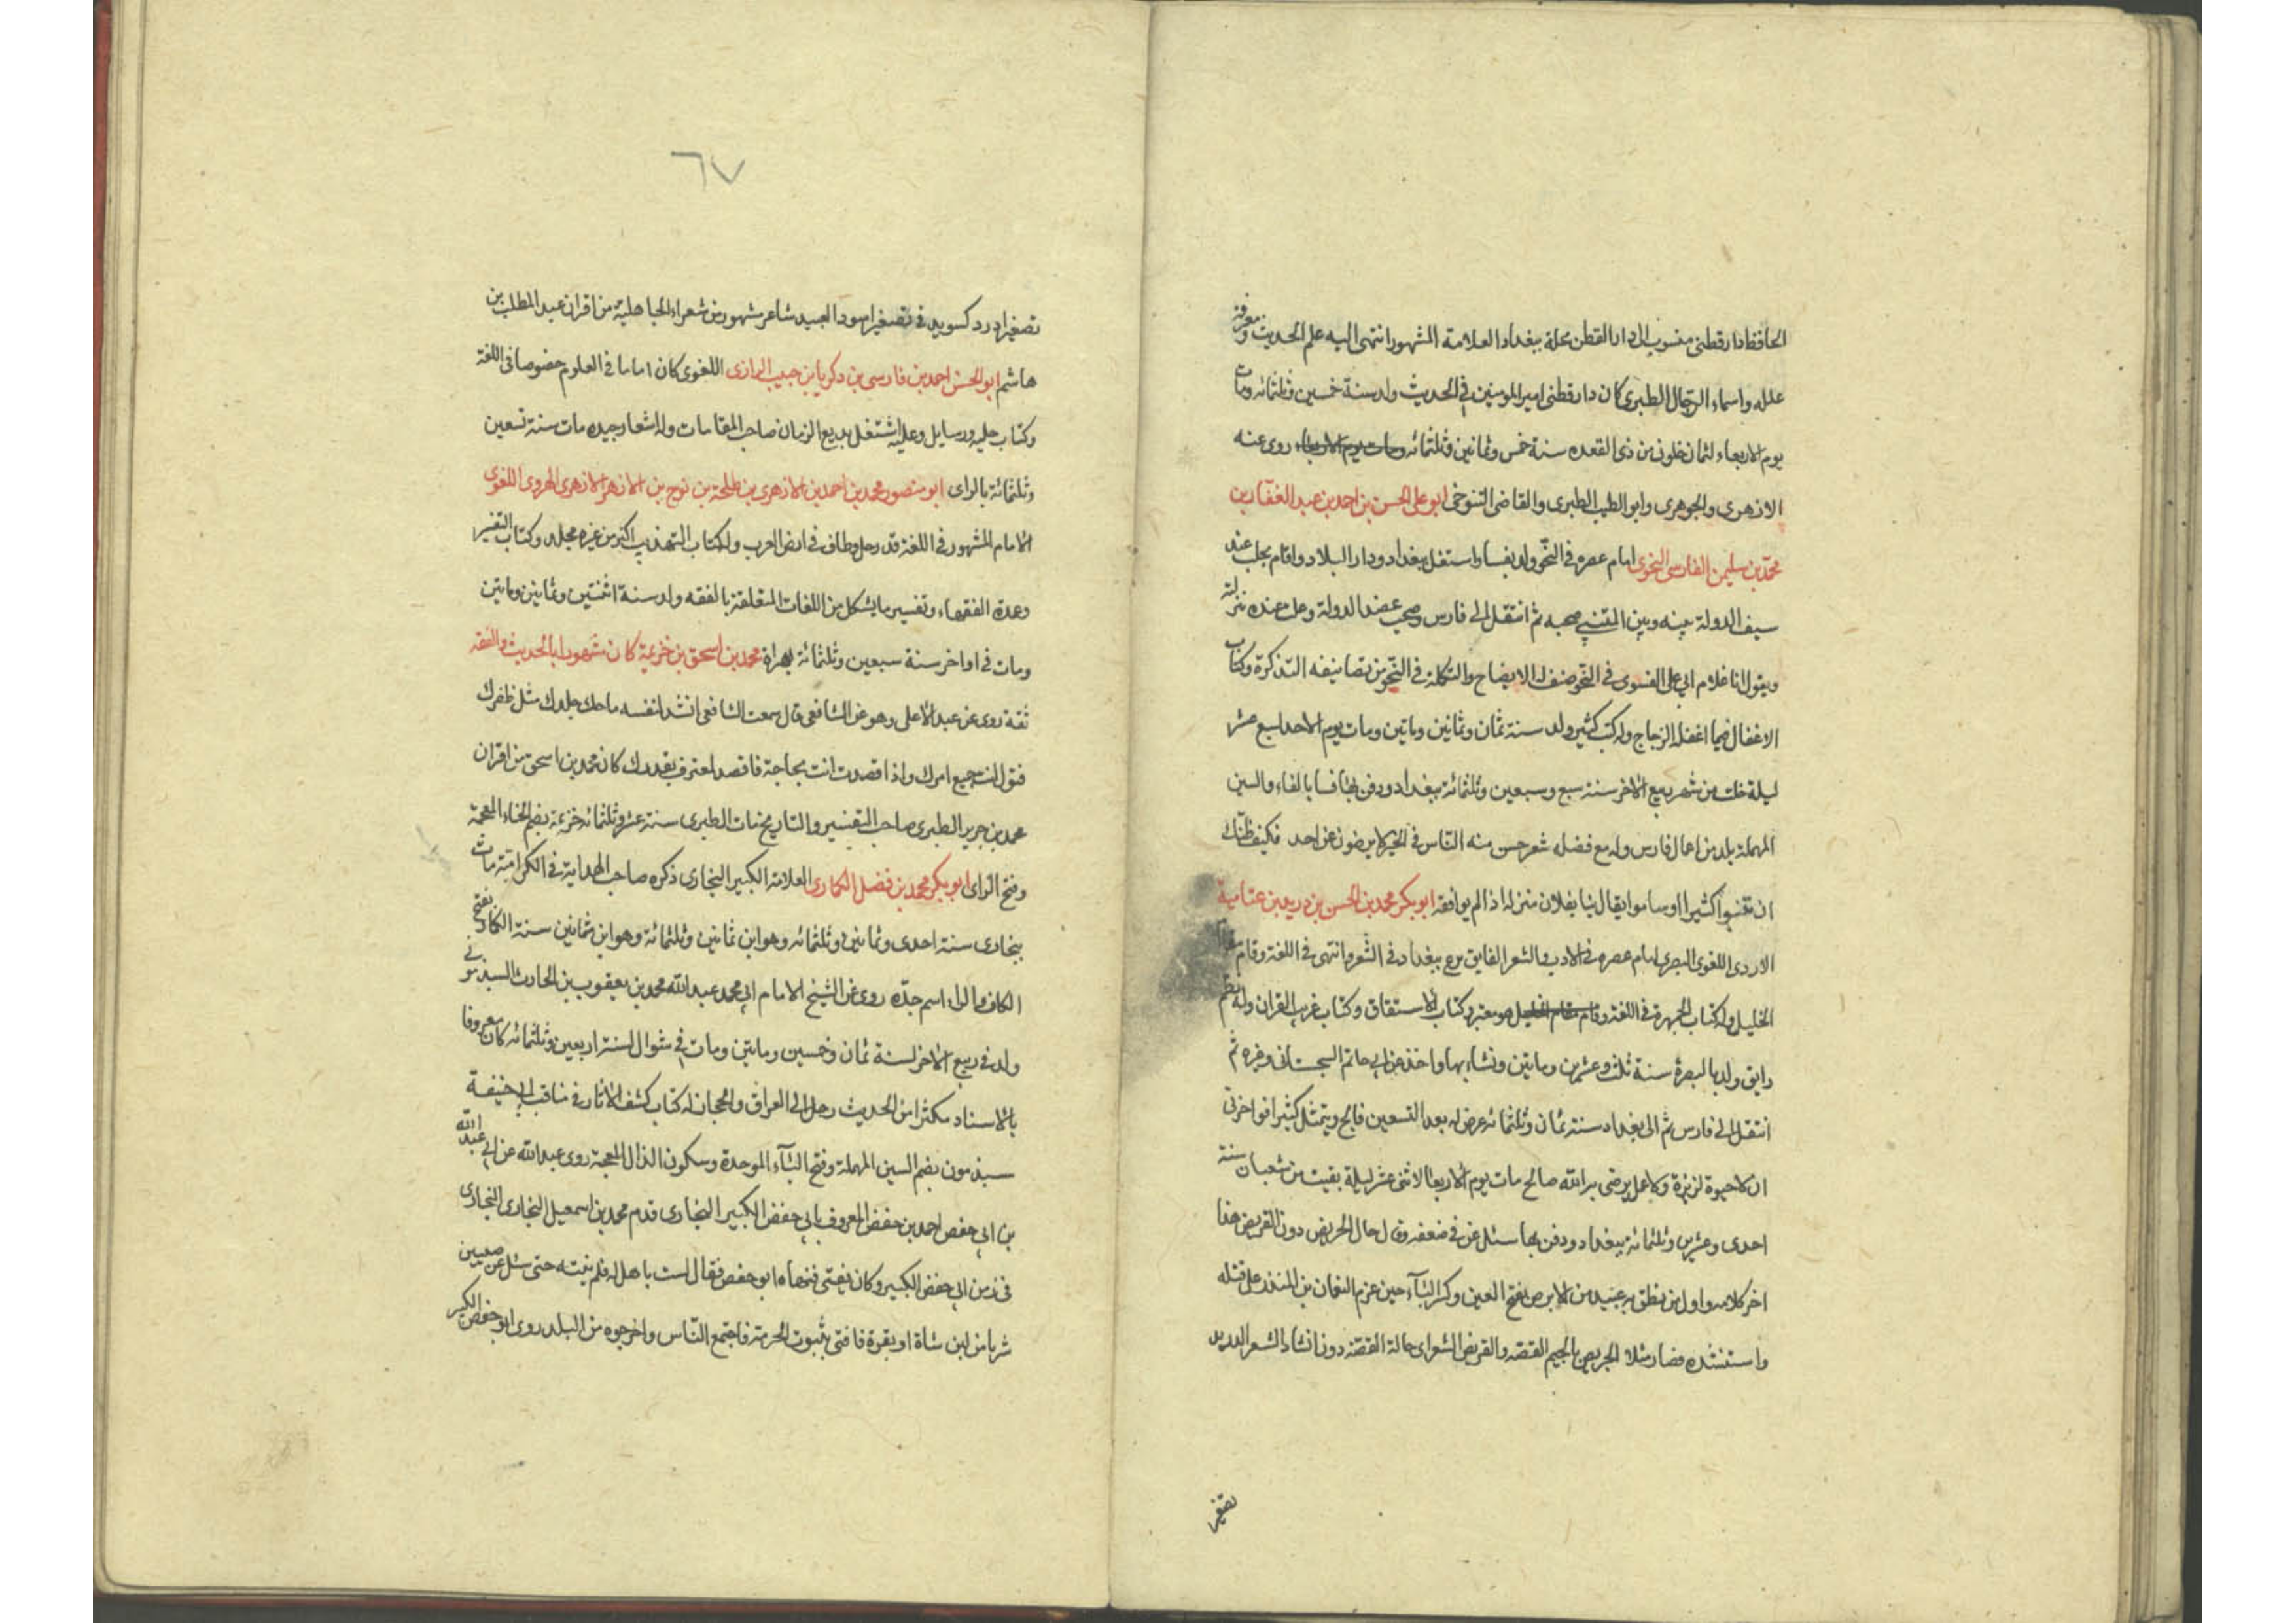 الحافظ دارقطنى منسوب الى دار القطن محلة ببغداد العلامة المشهور انتهى اليه علم الحديث ومعرفة
علله واسماء الرجال الطبرى كان دارقطنى امير المومنين فى الحديث ولد سنة خمسين وثلثمائه ومات
يوم الاربعاء لثمان خلون من ذى القعده سنة خمس وثمانين وثلثمائه ومات يوم الاربعاء روى عنه
الازهرى والجوهرى وابو الطيب الطبرى والقاضى التنوخى ابو على الحسن بن احمد بن عبد الغفار بن
محمد بن سليمن الفارسى النحوى امام عصره فى النحو ولد بفسا واستغل ببغداد ودار البلاد واقام بحلب عند
سيف الدولة بينه وبين المتنبى صحبه ثم انتقل الى فارس وصحب عضد الدولة وعل عنده منزلته
ويقول انا غلام ابى على الفسوى فى النحو صنف له الايضاح والتكملة فى النحو من تصانيفه التذكرة وكتاب
الاغفال فيما اغفله الزجاج وله كتب كثير ولد سنة ثمان وثمانين وماتين ومات يوم الاحد لسبع عشر
ليلة خلت من شهر ربيع الاخر سنة سبع وسبعين وثلثمائة ببغداد ودفن بها فسا بالفاء والسين
المهملة بلد من اعمال فارس وله مع فضله شعر حسن منه الناس فى الخير لا يرضون عن احد فكيف ظنك
ان كثيرا اوساموا يقال نبا بفلان منزله اذا لم يوافقه ابو بكر محمد بن الحسن بن دريد بن عتاهية
الازدى اللغوى البصرى امام عصره فى الادب والشعر الفايق برع ببغداد فى الشعر وانتهى فى اللغة وقام مقام
الخليل وله كتاب الجمهرة فى اللغة وقام مقام الخليل هو معتبر وكتاب الاستقاق وكتاب غريب القران وله نظم
رايق ولد بالبصرة سنة ثلث وعشرين وماتين ونشاء بها واخذ عن ابى حاتم السجستانى وغيره ثم
انتقل الى فارس ثم الى بغداد سنة ثمان وثلثمائه عرض له بعد التسعين فالج ويتمثل كثيرا فواحزنى
ان لا حيوة لزيزة ولا عمل يرضى به الله صالح مات يوم الاربعا لاثنى عشر ليلة بقيت من شعبان سنة
احدى وعشرين وثلثمائة ببغداد ودفن بها سئل عن فى ضعفه وقال حال الجريض دون القريض هذا
اخر كلامه واول من نطق به عبيد من الابرص بفتح العين وكسر الباء حين عزم النعمان بن المنذر على قتله
واستنشده فصار مثلا الجريض بالجيم الغصه والقريض الشعر اى حالة الغصة دون انشاد الشعر الدريد
تصغير
٦٧
تصغير ادرد كسويد فى تصغير اسود العبيد شاعر مشهور من شعراء الجاهلية من اقران عبد المطلب بن
هاشم ابو الحسن احمد بن فارسى بن دكريا بن حبيب الرازى اللغوى كان اماما فى العلوم خصوصا فى اللغة
وكتاب حليه ورسايل وعليه اشتغل بديع الزمان صاحب المقامات وله اشعار جيده مات سنة تسعين
وثلثمائة بالراى ابو منصور محمد بن احمد بن الازهرى بن طلحة بن نوح بن الازهر الازهرى الهروى اللغوى
الامام المشهور فى اللغة قد رحل وطاف فى ارض العرب وله كتاب التهذيب اكثر من عشره مجلد وكتاب التفسير
وعدة الفقهاء وتفسير ما يشكل من اللغات المتعلقة بالفقه ولد سنة اثنتين وثمانين وماتين
ومات فى اواخر سنة سبعين وثلثمائة بهراة محمد بن اسحق بن خزيمة كان مشهورا بالحديث والفقه
ثقة روى عن عبد الاعلى وهو عن الشافعى قال سمعت الشافعى انشد لنفسه ما حك جلدك مثل ظفرك
فتول انت جميع امرك واذا قصدت انت بحاجة فاقصد لمعترف بقدرك كان محمد بن اسحق من اقران
محمد بن جرير الطبرى صاحب التفسير والتاريخ مات الطبرى سنة عشر وثلثمائه خزيمة بضم الخاء المعجمة
وفتح الزاى ابو بكر محمد بن فضل الكمارى العلامة الكبير البخارى ذكره صاحب الهداية فى الكرامة مات
ببخارى سنة احدى وثمانين وثلثمائه وهو ابن ثمانين وثلثمائة وهو ابن ثمانين سنة الكمار بفتح
الكاف والراء اسم جده روى عن الشيخ الامام ابى محمد عبد الله محمد بن يعقوب بن الحارث السبذمونى
ولد فى ربيع الاخر لسنة ثمان وخمسين وماتين ومات فى شوال لسنة اربعين وثلثمائه كان معروفا
بالاسناد مكثرا من الحديث رحل الى العراق والحجاز له كتاب كشف الاثار فى مناقب ابى حنيفة
سبذمون بضم السين المهملة وفتح الباء الموحدة وسكون الذال المعجمة روى عبد الله عن ابى عبد الله
بن ابى حفص احمد بن حفص المعروف بابى حفص الكبير البخارى قدم محمد بن اسمعيل البخارى البخارى
فى زمن ابى حفص الكبير وكان يفتى فنهاه ابو حفص فقال لست باهل له فلم ينته حتى سئل عن صبيين
شربا من لبن شاة او بقرة فافتى بثبوت الحرمة فاجتمع الناس واخرجوه من البلد روى ابو حفص الكبير